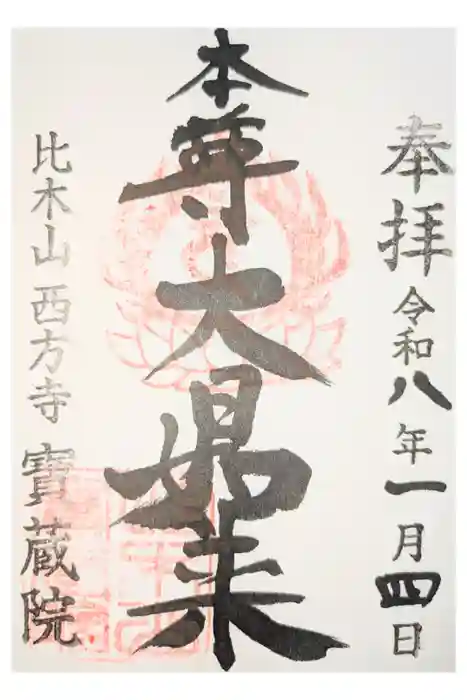 奉拝 令和八年一月四日
本尊大日如来
比木山 西方寺 寶蔵院